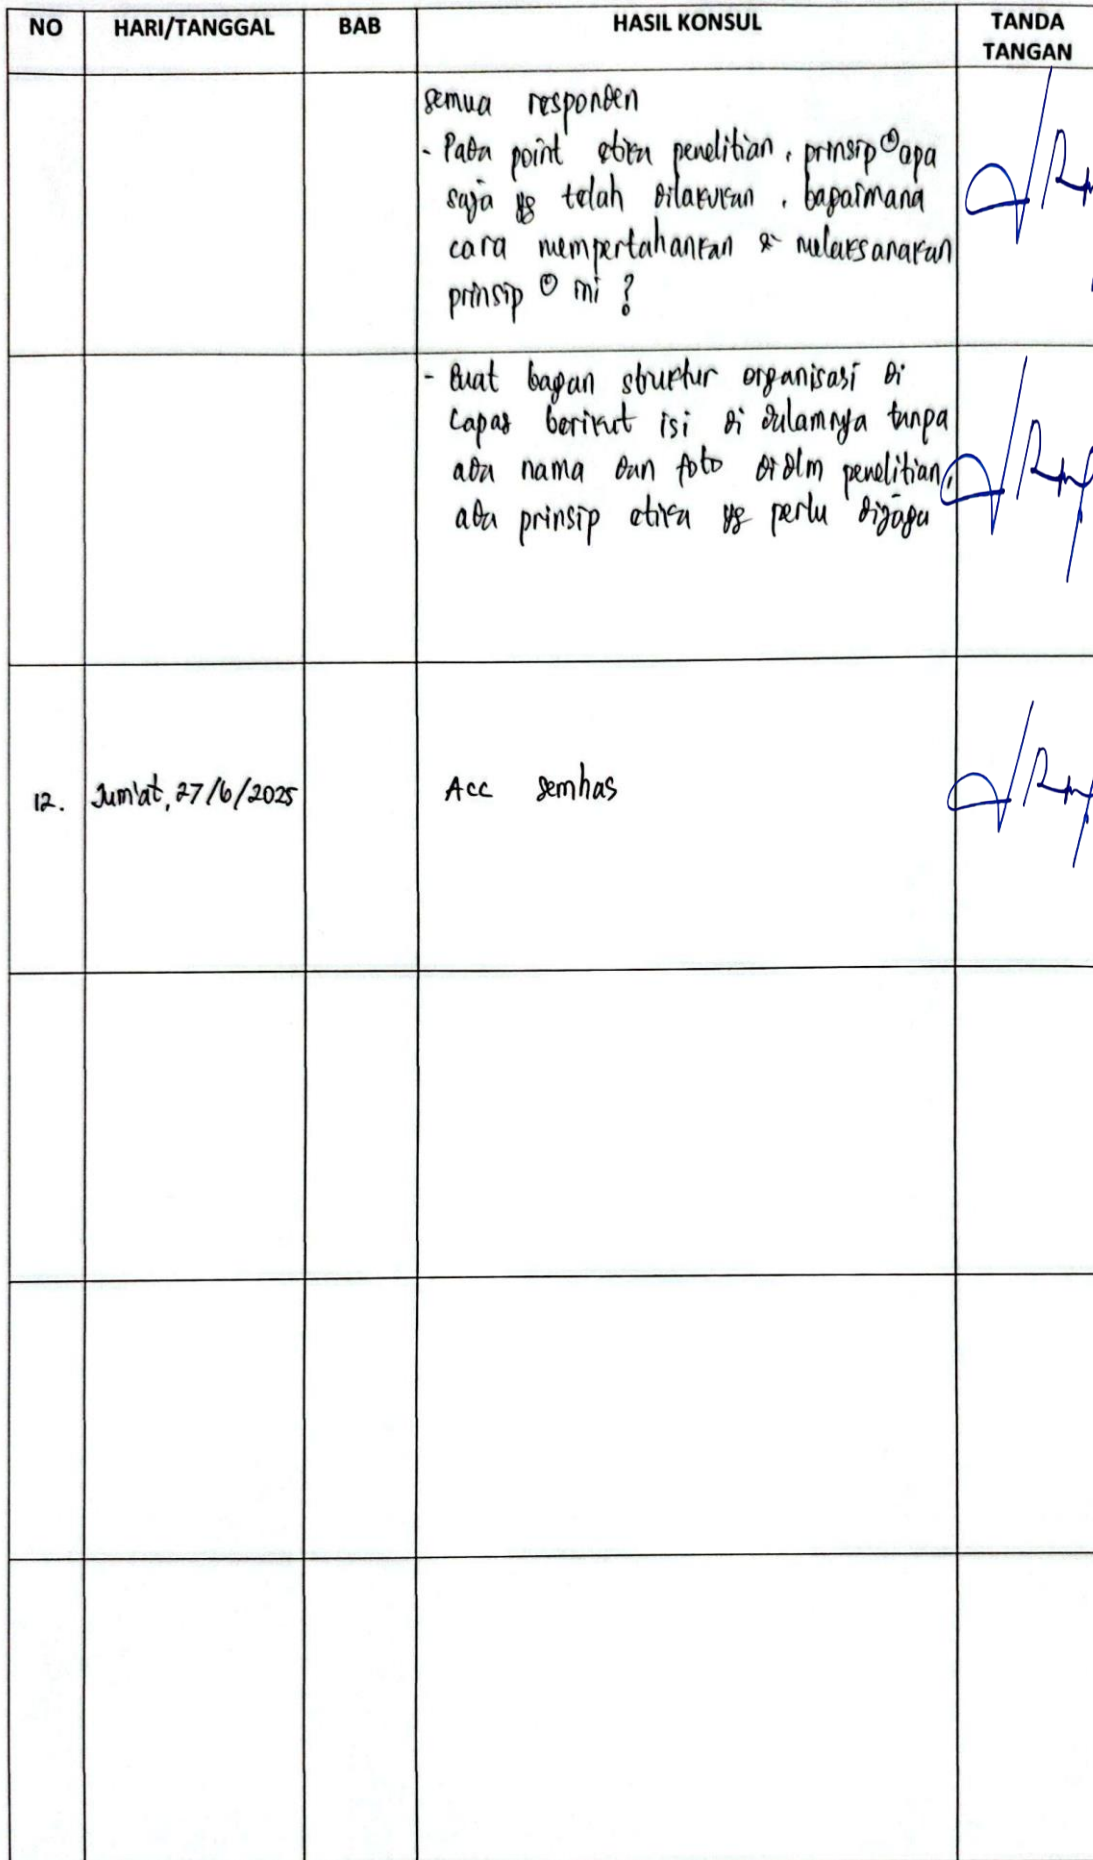 NO HARI/TANGGAL BAB HASIL KONSUL TANDA TANGAN
semua responden
- Pada point etika penelitian, prinsip² apa
saja yg telah dilakukan, bagaimana
cara mempertahankan & melaksanakan
prinsip² ini ?
- Buat bagan struktur organisasi di
Lapas berikut isi di dalamnya tanpa
ada nama dan foto di dlm penelitian,
ada prinsip etika yg perlu dijaga
12. Jum'at, 27/6/2025 Acc semhas